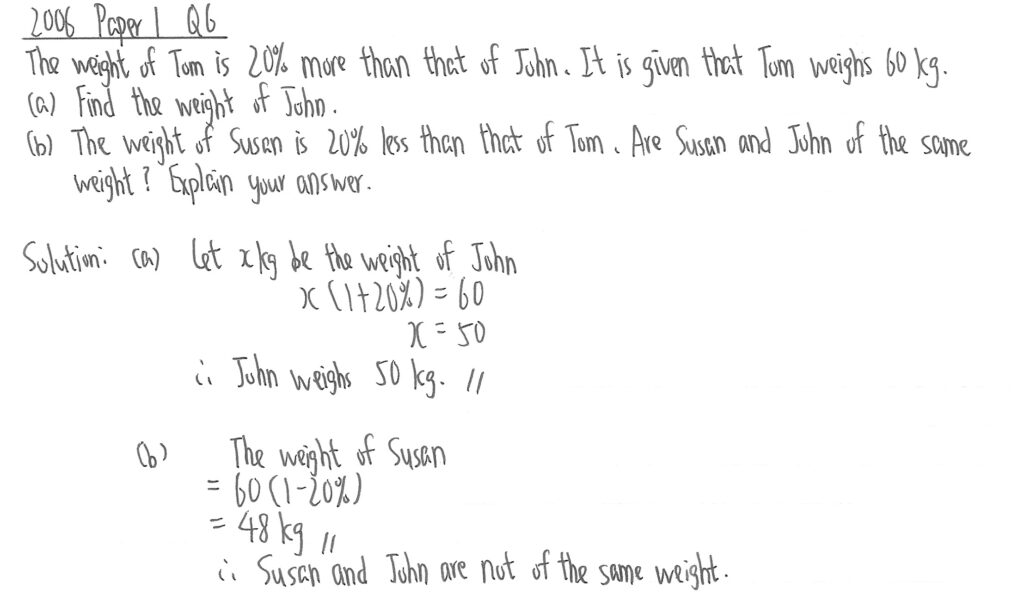 2006 Paper 1 Q6
The weight of Tom is 20% more than that of John. It is given that Tom weighs 60 kg.
(a) Find the weight of John.
(b) The weight of Susan is 20% less than that of Tom. Are Susan and John of the same
weight? Explain your answer.
Solution: (a) Let x kg be the weight of John
x(1+20%) = 60
x = 50
∴ John weighs 50 kg. //
(b) The weight of Susan
= 60(1-20%)
= 48 kg //
∴ Susan and John are not of the same weight.